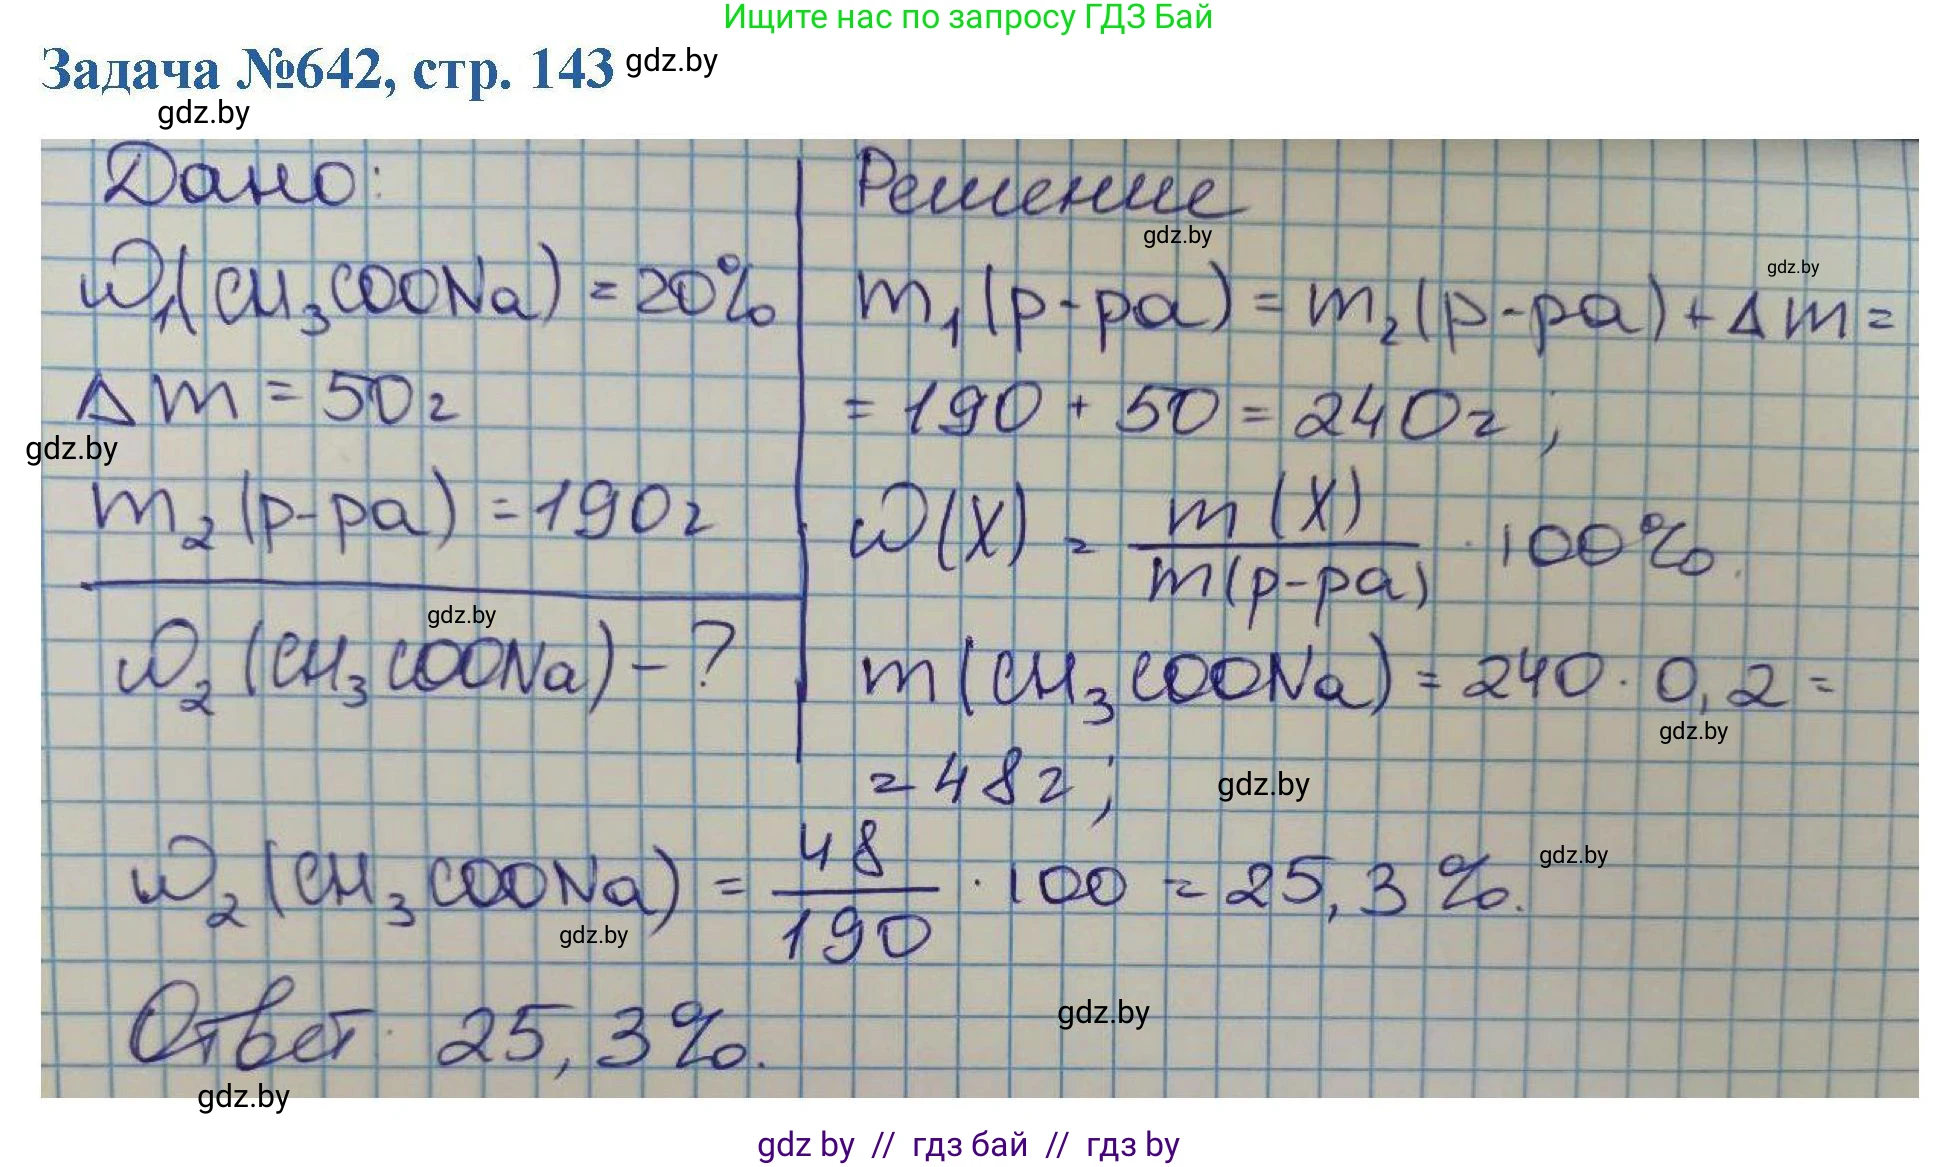 Ищите нас по запросу ГДЗ Бай
Задача №642, стр. 143 gdz.by
gdz.by
Дано:
ω₁(CH₃COONa) = 20%
Δm = 50г
gdz.by
m₂(р-ра) = 190г
gdz.by
ω₂(CH₃COONa) - ?
Решение
gdz.by
gdz.by
m₁(р-ра) = m₂(р-ра) + Δm =
= 190 + 50 = 240г;
ω(X) = m(X) / m(р-ра) · 100%.
m(CH₃COONa) = 240 · 0,2 =
gdz.by
= 48г;
gdz.by
ω₂(CH₃COONa) = 48 / 190 · 100 = 25,3%.
gdz.by
gdz.by
Ответ: 25,3%.
gdz.by
gdz.by
gdz by // гдз бай // гдз by